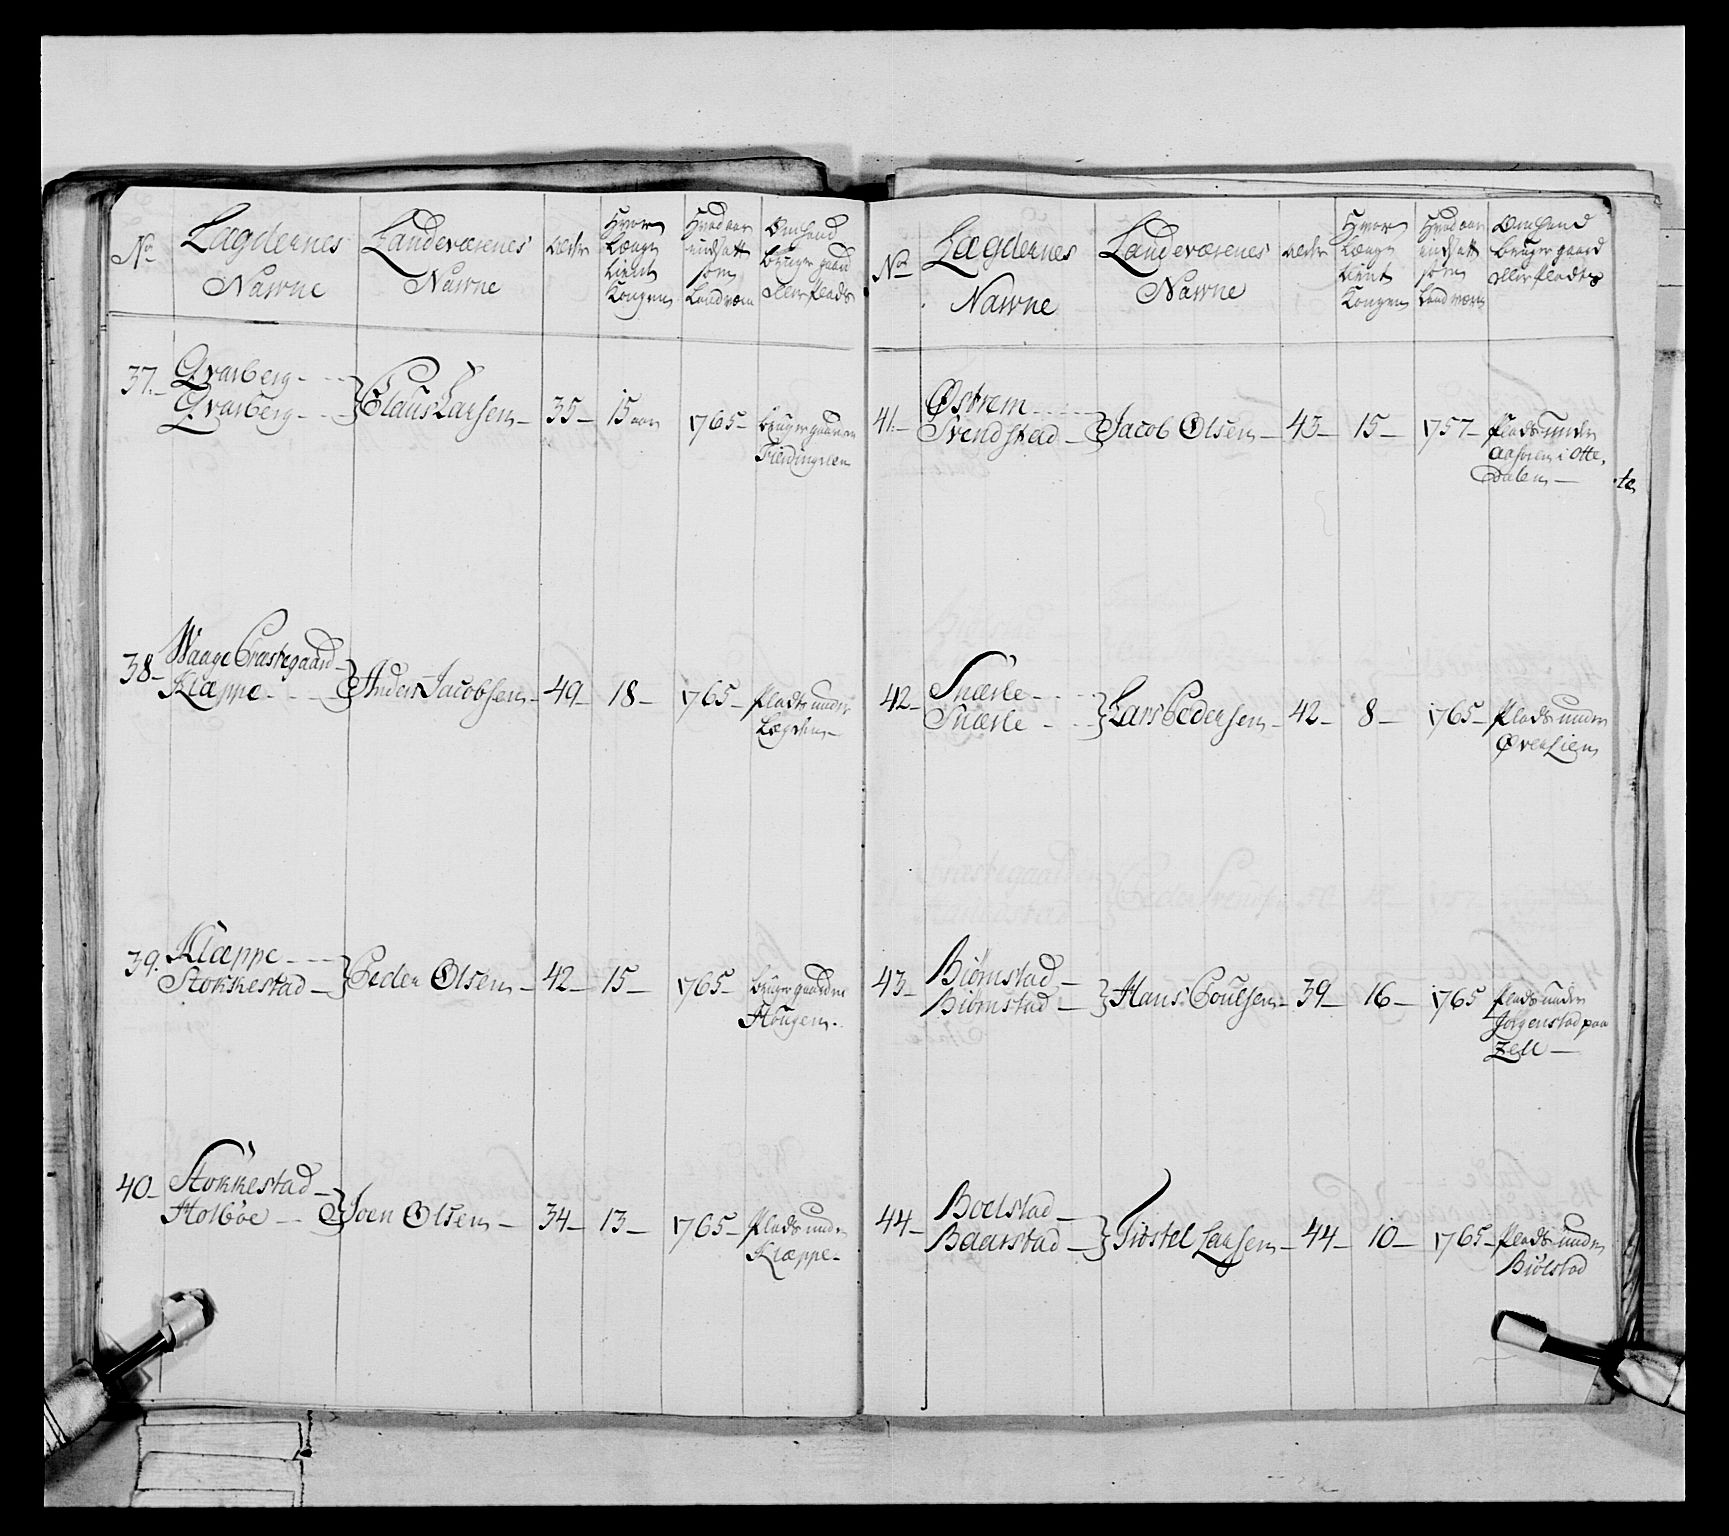 No
Lægdernes
Nawne
Landeværenes
Nawne
Alder
Hvor
Længe
tient
Kongen
Hvad aar
indsatt
som
Landværn
Om hand
bruger gaard
eller Plads
37.- Qvarberg - - -
Qvarberg - - Claus Larsen - 35 - 15 aar 1765 - bruger gaarden
38 - Waage Præstegaard -
Klæppe - - - Anders Jacobsen - 49 - 18 - 1765 - Plads under
Lægden -
39. Klæppe - - -
Stokkestad - Peder Olsen - 42 - 15 - 1765 - bruger gaarden
Hougen -
40 - Stokkestad -
Holbøe - - Joen Olsen - 34 - 13 - 1765 - Plads under
Klæppe -
No
Lægdernes
Nawne
Landeværenes
Nawne
Alder
Hvor
Længe
tient
Kongen
Hvad aar
indsatt
som
Landværn
Om hand
bruger gaard
eller Plads
41.- Østrem - - -
Svendstad - Jacob Olsen - 43 - 15 - 1757 - Plads under
i Otte
Dalen -
te
42 - Snærle - - -
Snærle - - Lars Pedersen - 42 - 8 - 1765 - Plads under
Øver Lien
43 - Biørnstad -
Biørnstad - Hans Poulsen - 39 - 16 - 1765 Plads under
Jørgenstad paa
Zell -
44 - Boelstad -
Baarstad - Tiøstel Larsen - 44 - 10 - 1765 - Plads under
Biølstad